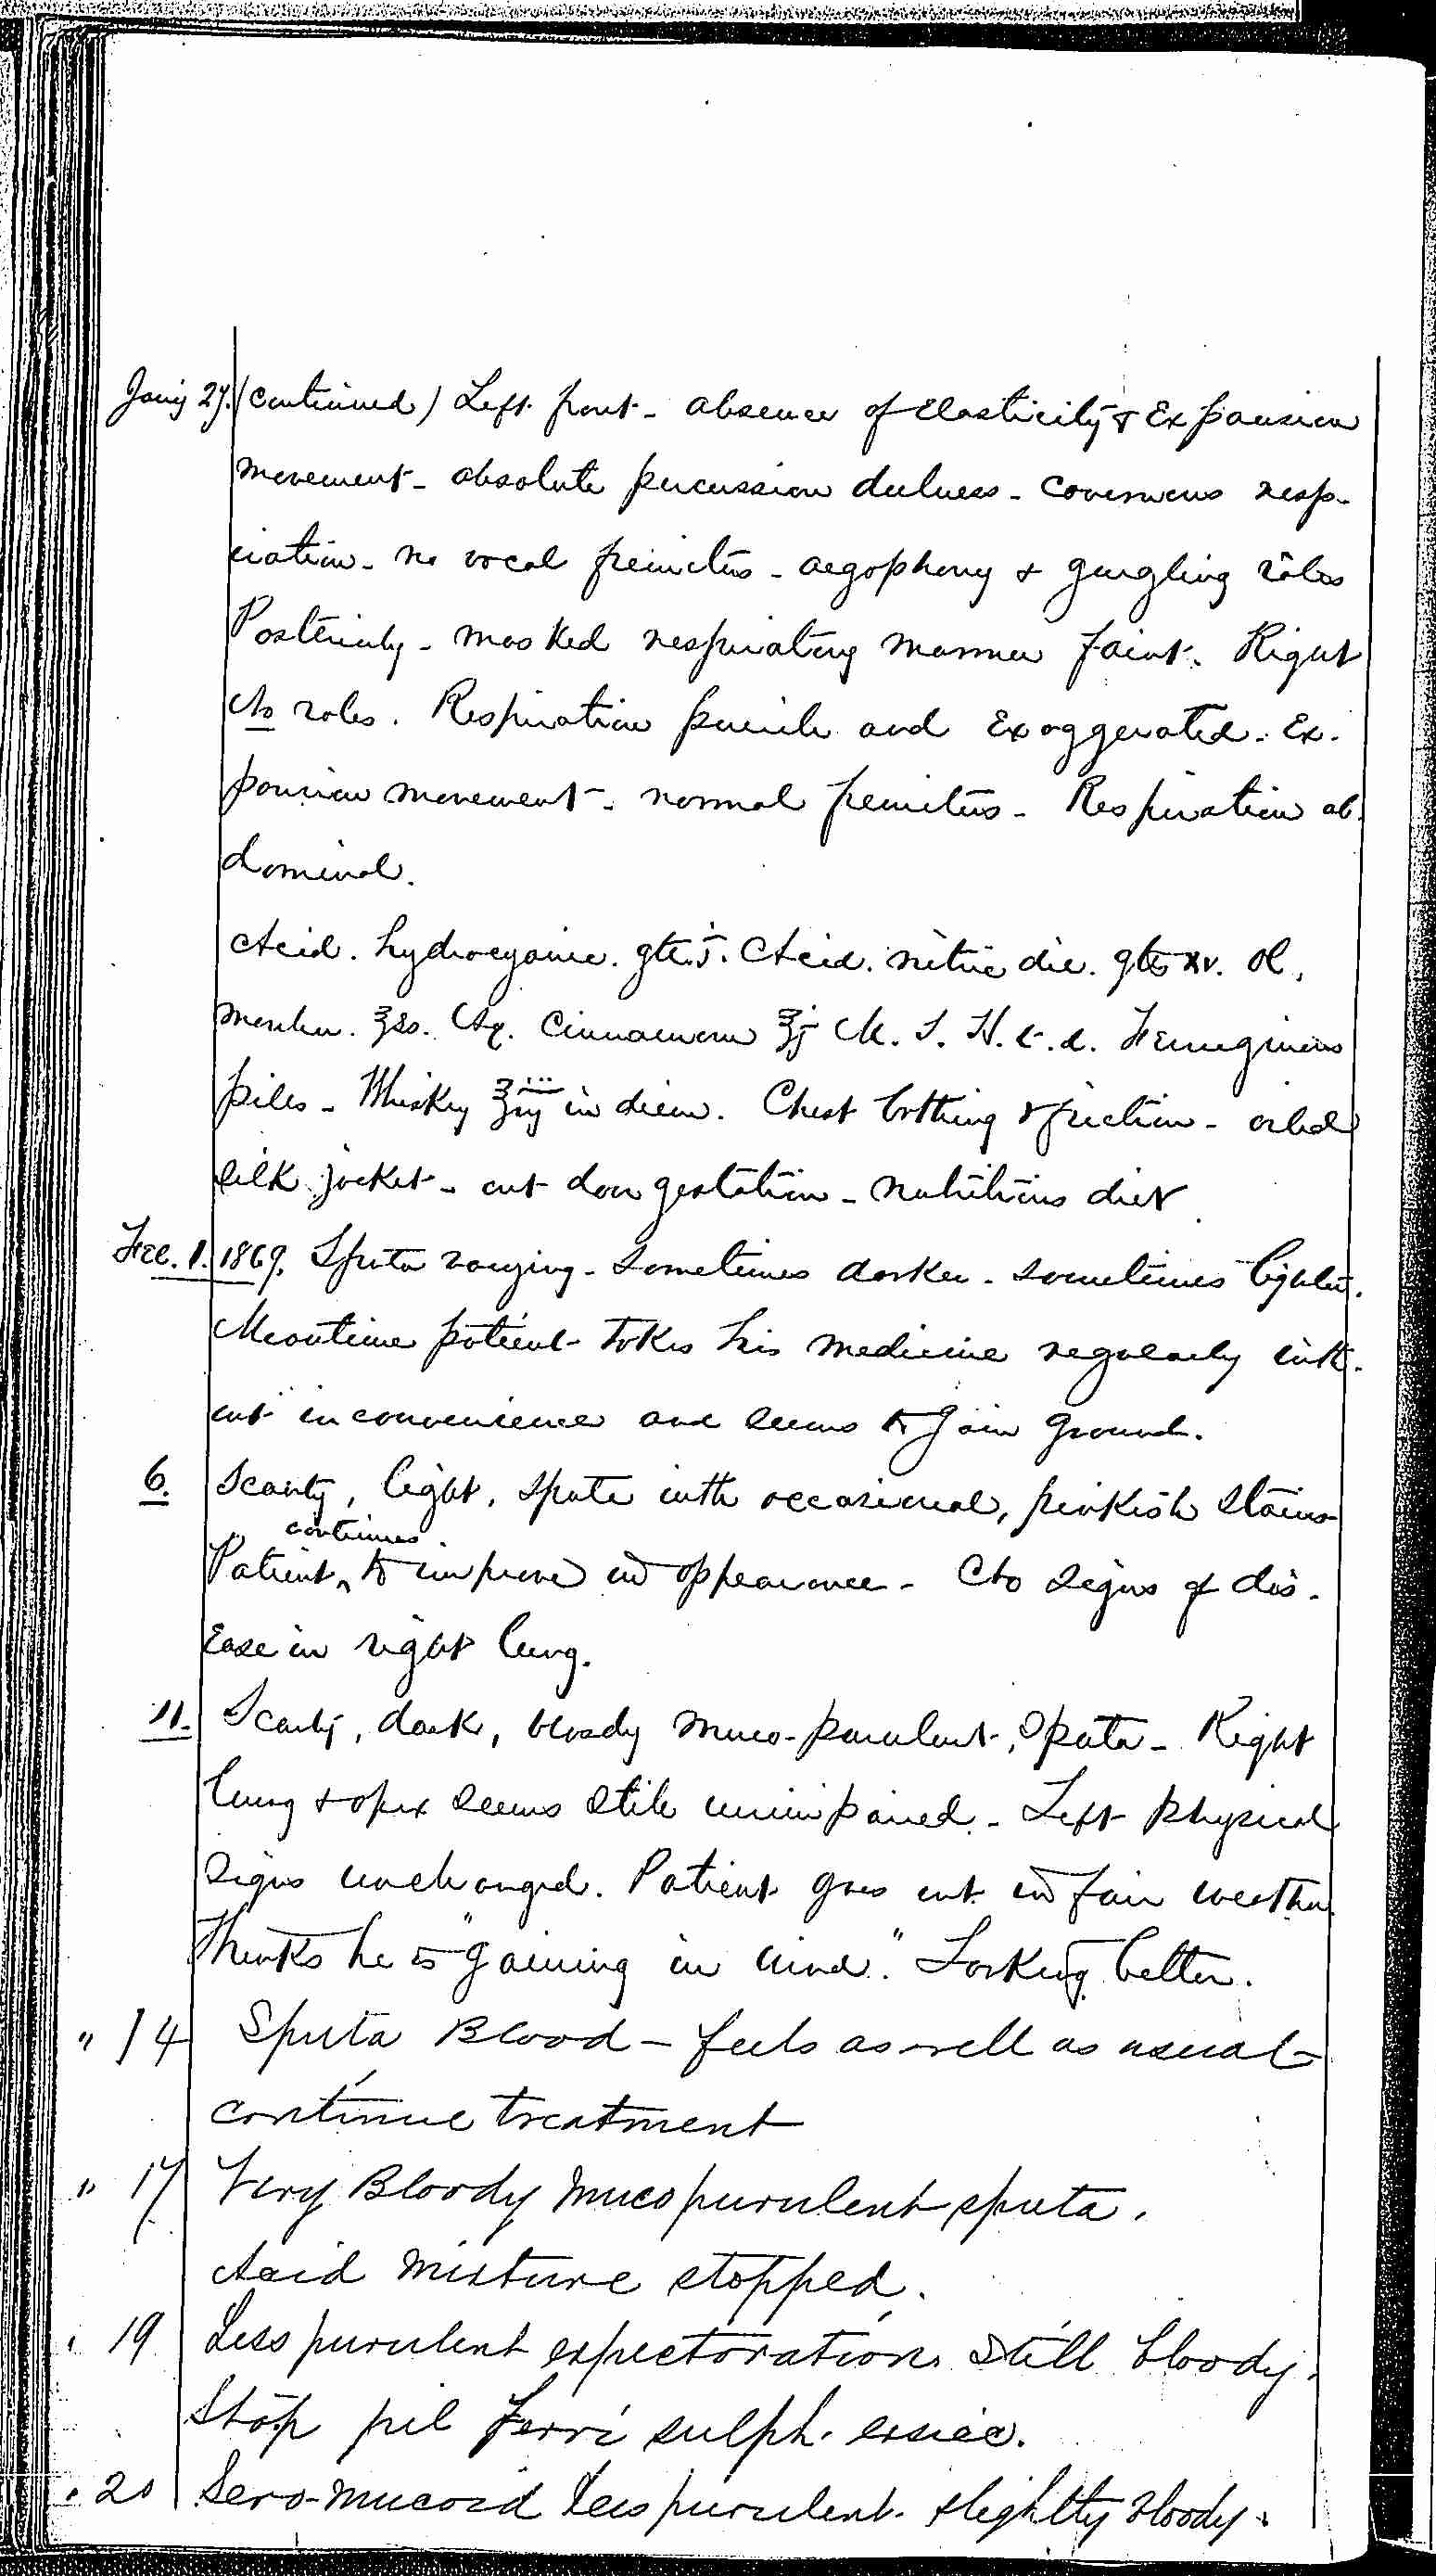 Jany 27. (continued) Left front - absence of elasticity & expansion
movement - absolute percussion dulness - cavernous resp-
iration - no vocal fremitus - aegophony & gurgling râles
Posteriorly - masked respiratory murmur faint. Right
No rales. Respiration puerile and exaggerated. Ex-
pansion movement - normal fremitus - Respiration ab-
dominal.
Acid. hydrocyanic. gtt.j. Acid. nitric dil. gtts xv. Ol.
morrhu. ℥ss. Aq. Cinnamom ℥j M. S. H. t. d. Ferruginous
pills - Whiskey ℥iij in diem. Chest bathing & friction - oiled
silk jacket - out door gestation - nutritious diet.
Feb. 1. 1869. Sputa varying - sometimes darker - sometimes lighter.
Meantime patient takes his medicine regularly with-
out inconvenience and seems to gain ground.
6. Scanty, light, sputa with occasional, pinkish stains
Patient continues to improve in appearance - No signs of dis-
ease in right lung.
11. Scanty, dark, bloody muco-purulent, sputa - Right
lung & apex seems still unimpaired - Left physical
signs unchanged. Patient goes out in fair weather
Thinks he is "gaining in wind." Looking better.
" 14 Sputa Blood - feels as well as usual -
continue treatment
" 17 Very Bloody mucopurulent sputa.
Acid mixture stopped.
" 19 Less purulent expectoration. Still bloody.
Stop pil Ferri sulph. exsicc.
" 20 Sero-mucoid less purulent. slightly bloody.